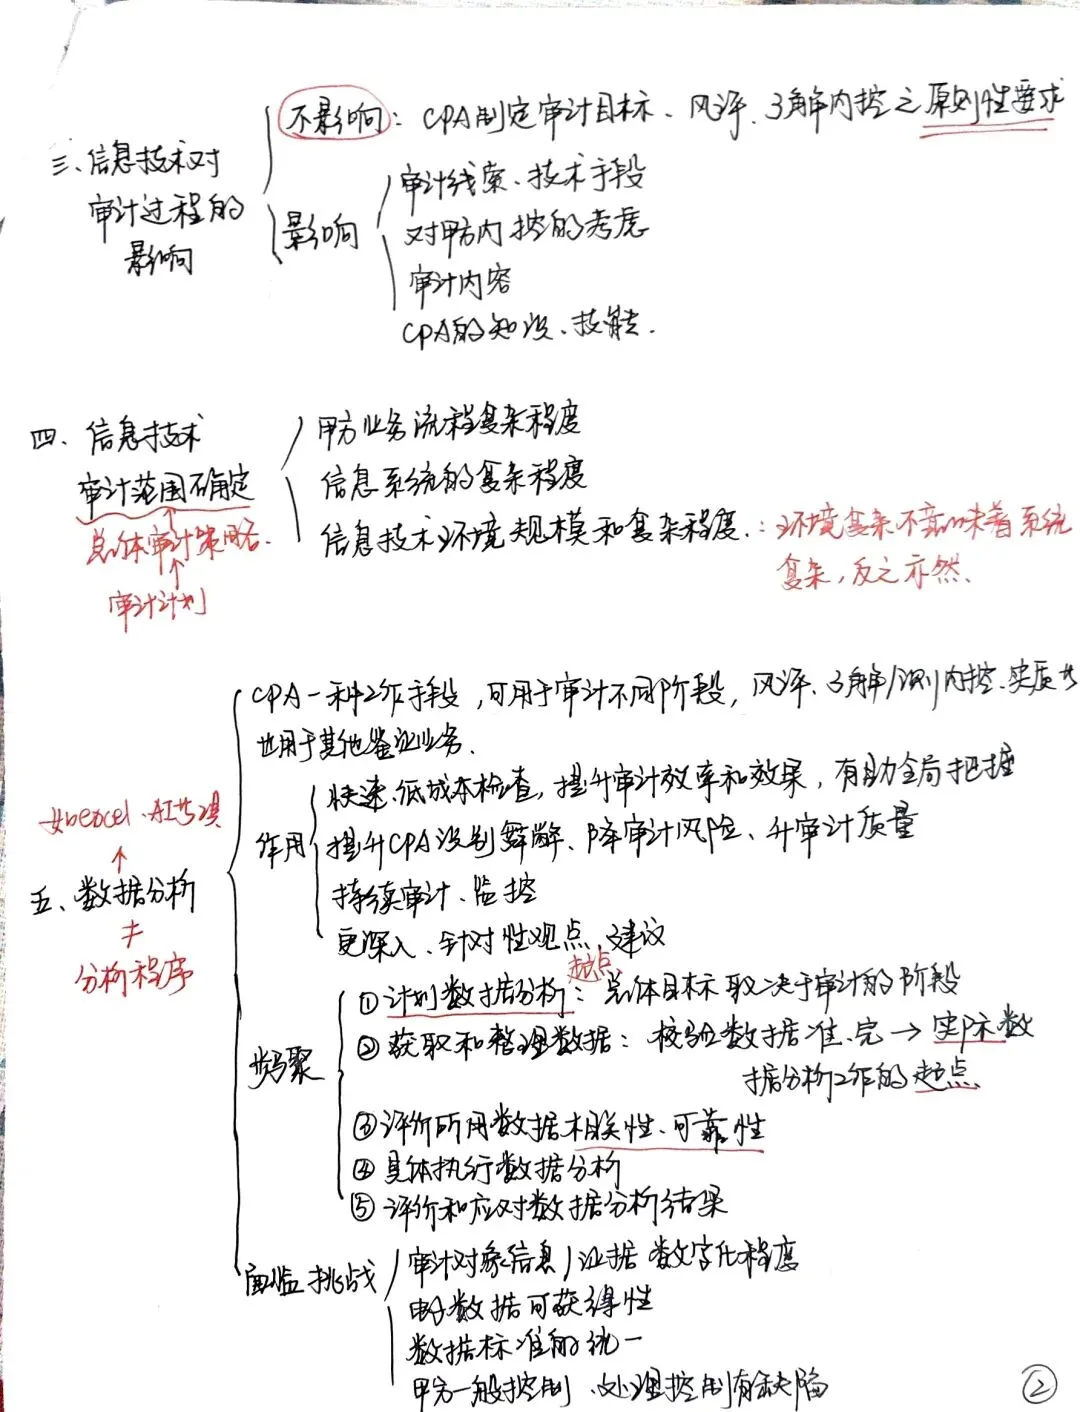 三、信息技术对
审计过程的
影响
不影响：CPA制定审计目标、风评、了解内控之原则性要求
影响
审计线索、技术手段
对甲方内控的考虑
审计内容
CPA的知识、技能.
四、信息技术
审计范围确定
总体审计策略.
审计计划
甲方业务流程复杂程度
信息系统的复杂程度
信息技术环境规模和复杂程度.：环境复杂不意味着系统
复杂，反之亦然.
如excel、AI专项
五、数据分析
≠
分析程序
CPA一种工作手段，可用于审计不同阶段，风评、了解/识别内控、实质
也用于其他鉴证业务.
作用
快速、低成本检查，提升审计效率和效果，有助全局把握
提升CPA识别舞弊、降审计风险、升审计质量
持续审计、监控
更深入、针对性观点、建议
步骤
起点
①计划数据分析：总体目标取决于审计的阶段
②获取和整理数据：校验数据准、完→实际数
据分析工作的起点
③评价所用数据相关性、可靠性
④具体执行数据分析
⑤评价和应对数据分析结果
面临挑战
审计对象信息/证据数字化程度
电子数据可获得性
数据标准的统一
甲方一般控制、处理控制有缺陷
②